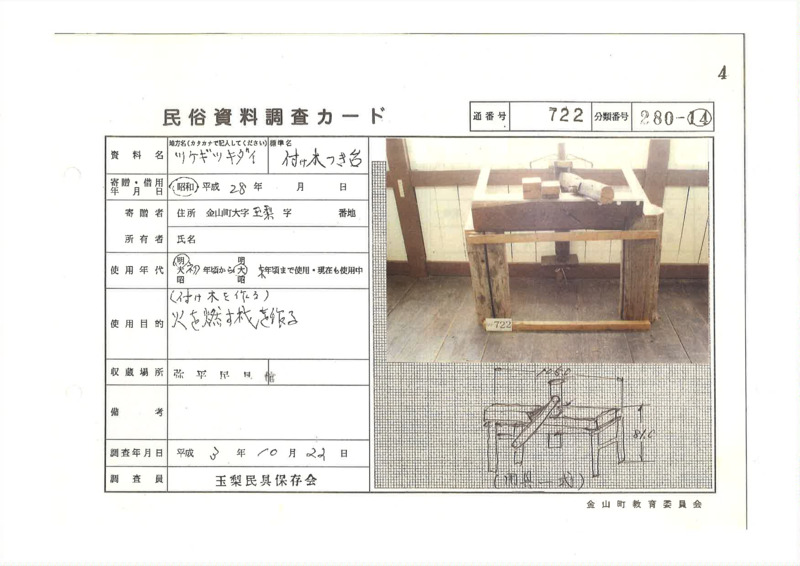 4
民俗資料調査カード
通番号 722 分類番号 280-14
資料名 地方名(カタカナで記入してください) ツケギツキダイ 標準名 付け木つき台
寄贈・借用年月日 昭和 平成 28年 月 日
寄贈者 住所 金山町大字玉梨字 番地
所有者 氏名
使用年代 明大昭 初年頃から 明大昭 末年頃まで使用・現在も使用中
使用目的 (付け木を作る)
火を燃す を作る
収蔵場所
備考
調査年月日 平成 3年 10月 22日
調査員 玉梨民具保存会
722
106.0
81.0
(用具一式)
金山町教育委員会